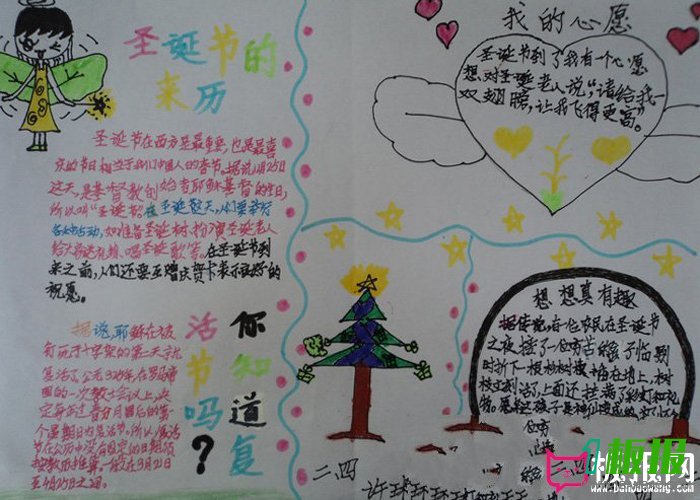 圣诞节的
来历
圣诞节在西方是最重要,也是最喜
庆的节日相当于我们中国人的春节。据说,12月25日
这天,是基督教创始者耶稣基督的生日,
所以叫“圣诞节”在圣诞这天,人们要举行
各种活动,如准备圣诞树、扮演圣诞老人
给大家送礼物、唱圣诞歌等,在圣诞节到
来之前,人们还要互赠庆贺卡表示美好的
祝愿。
你知道复
活节吗?
据说,耶稣在被
钉死于十字架的第三天就
复活了,公元325年,在罗马帝
国的一次教士会议上,决
定每年过春分月圆后的第一
个星期日为复活节。所以,复活
节在公历中没有固定的日期,须
按教历推算,一般在3月21日
至4月25日之间。
我的心愿
圣诞节到了我有一个心愿
想对圣诞老人说:“请给我一
双翅膀,让我飞得更高”。
想想真有趣
据传说,有一位农民在圣诞节
之夜,接了一位有苦
时折下一根杉树枝插在地上,树
枝立刻活了,上面还挂满了彩灯和礼
物。原来这孩子是神仙
二.四
板报网
www.banbaowang.com